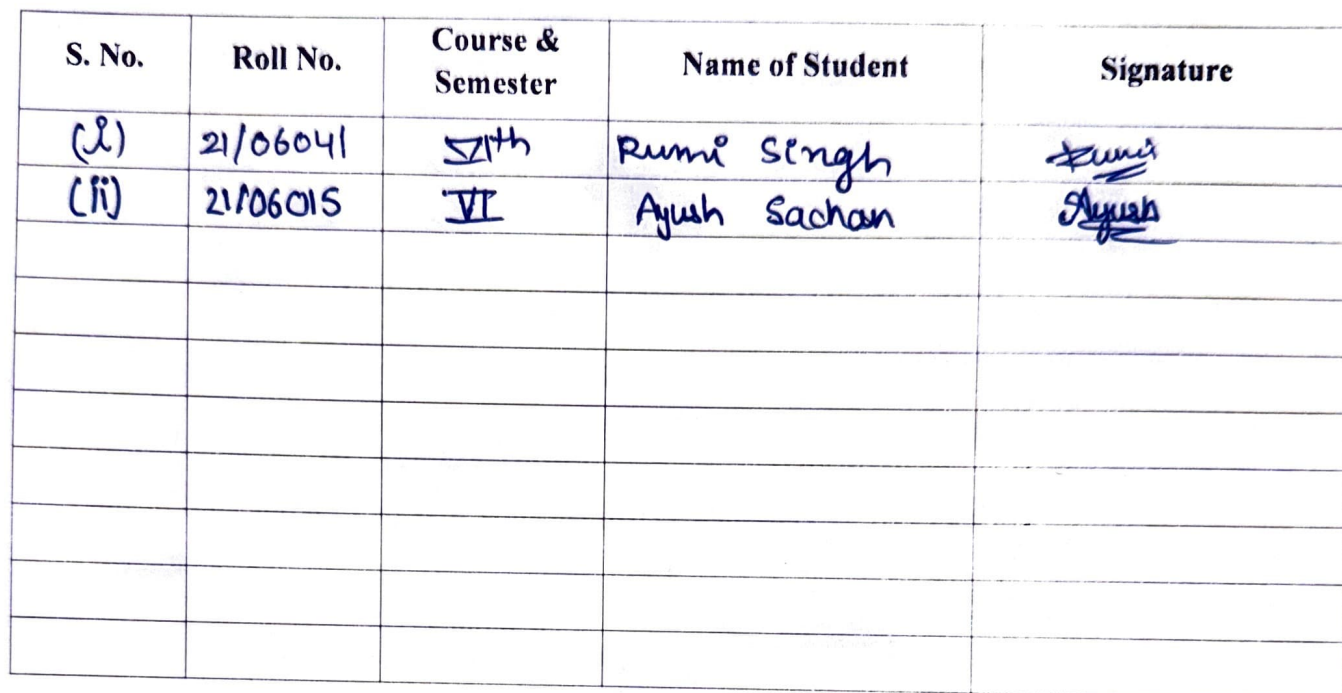 S. No. Roll No. Course & Semester Name of Student Signature
(i) 21/06041 VIth Rumi Singh Rumi
(ii) 21/06015 VI Ayush Sachan Ayush